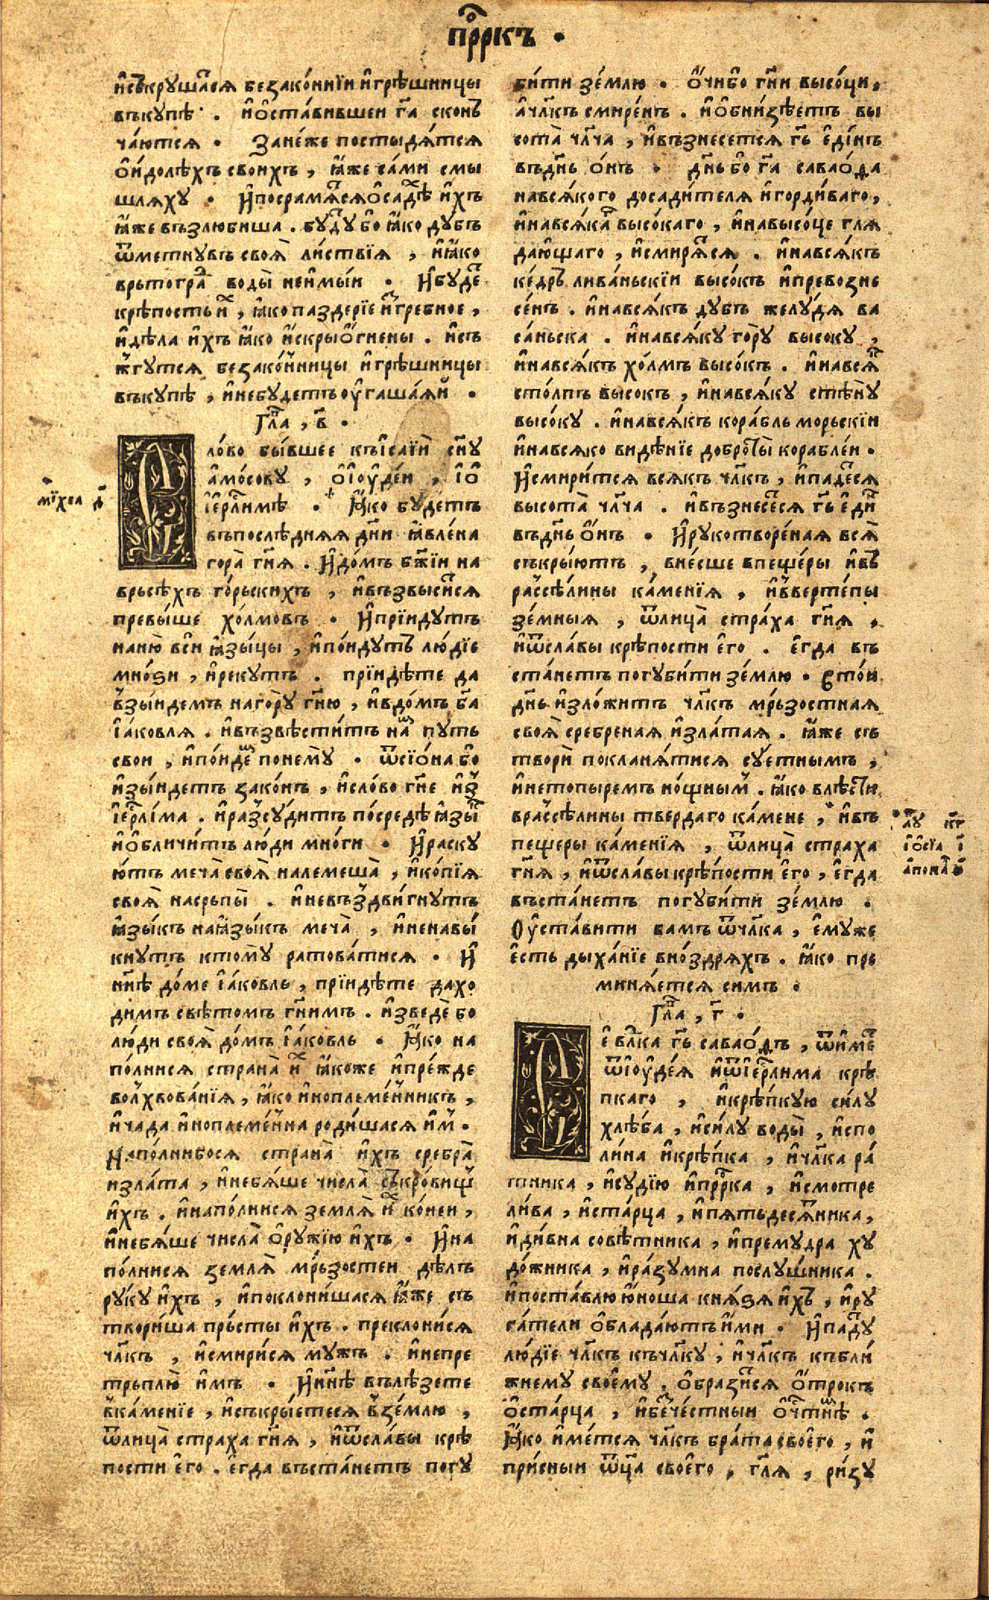 прⷪ҇ркъ ·
исъкрꙋшатⷭ҇я беза́ко́ннїи и҆грѣшницы
въкꙋпѣ · и҆ѡ҆ста́вившеи гⷭ҇а скон
ча́ются · Зане́же постыдя́тся
ѻ҆и҆долѣхъ свои́хъ , ꙗ҆́же са́ми смы
шляхꙋ · И҆посрамя́тся ѡ҆садѣⷯ и҆́хъ
ꙗ҆́же възлюби́ша . бꙋ́дꙋⷮ бо ꙗ҆́ко дꙋбъ
ѿметнꙋвъ своя̀ ли́ствїя , и҆ꙗ҆́ко
врьтогра́ⷣ воды̀ неи҆мы́и · И҆бꙋ́деⷮ
крѣ́пость и҆́ⷯ , ꙗ҆́ко паздерїе и҆згре́бное ,
и҆дѣла и҆́хъ ꙗ҆́ко и҆́скры ѻ҆́гнены . и҆съ
жгꙋ́тся беза́ко́нницы и҆грѣ́шницы
въкꙋпѣ , и҆небꙋ́детъ ᲂу҆гаша́яи ·
Глⷡ҇а , в҃ .
Сло́во бы́вшее къі҆са́їи сн҃ꙋ
а҆мо́совꙋ , ѻ҆і҆ᲂу҆де́и , і҆ѻ҆
і҆ерⷭ҇ли́мѣ · Ꙗ҆́ко бꙋ́детъ
въпослѣ́дняя дн҃и ꙗ҆вле́на
гора̀ гⷭ҇ня . И҆до́мъ бж҃їи на
врьсѣ́хъ го́рьскихъ , и҆възвы́ситⷭ҇я
превы́ше хо́лмовъ · И҆прїи́дꙋтъ
наню̀ вси ꙗ҆зы́цы , и҆по́идꙋтъ лю́дїе
мно́зи , и҆рекꙋ́тъ . прїидѣ́те да
взы́идемъ нагорꙋ̀ гⷭ҇ню , и҆вдо́мъ бг҃а
і҆а́ковля . и҆възвѣсти́тъ на́мъ пꙋть
свои , и҆по́идеⷨ понемꙋ̀ · ѿсїѡ́на бо
и҆зы́идетъ зако́нъ , и҆сло́во гⷭ҇не и҆з
і҆ерⷭ҇ли́ма . и҆разсꙋ́дитъ посредѣ̀ ꙗ҆зы́ⷦ
и҆ѡ҆бличи́тъ лю́ди мно́ги · И҆раскꙋ
ю́тъ меча̀ своя̀ налемеша̀ , и҆ко́пїя
своя̀ насрьпы̀ . и҆невъздви́гнꙋтъ
ꙗ҆зы́къ наꙗ҆зы́къ меча̀ , и҆ненавы́
кнꙋтъ ктомꙋ̀ ра́товатися · И҆
нн҃ѣ до́ме і҆а́ковль , прїидѣ́те дахо́
димъ свѣ́томъ гⷭ҇нимъ . и҆зведѐ бо
лю́ди своя̀ до́мъ і҆а́ковль · Ꙗ҆́ко на
по́лнися страна̀ и҆́ⷯ ꙗ҆́коже и҆пре́жде
волхвова́нїя , ꙗ҆́ко и҆ноплеме́нникъ ,
и҆ча́да и҆ноплеме́нна роди́шася и҆́м .
Напо́лнибося страна̀ и҆́хъ сребра̀
и҆зла́та , и҆небя́ше числа̀ скро́вищъ
и҆́хъ . и҆напо́лнися земля̀ и҆́ⷯ ко́неи ,
и҆небя́ше числа̀ ѻ҆рꙋ́жїю и҆́хъ · И҆на
по́лнися земля̀ мрьзостеи дѣ́лъ
рꙋкꙋ̀ и҆́хъ , и҆поклони́шася ꙗ҆́же съ
твори́ша пръ́сты и҆́хъ . преклони́ся
чл҃къ , и҆смири́ся мꙋжъ . и҆непре
трьплю̀ и҆́мъ · И҆нн҃ѣ вълѣ́зете
вка́менїе , и҆съкры́етеся взе́млю ,
ѿлица̀ стра́ха гⷭ҇ня , и҆ѿсла́вы крѣ́
пости е҆го̀ . е҆гда въста́нетъ погꙋ
би́ти зе́млю · Ѻ҆́чибо гⷭ҇ни высо́ци ,
а҆чл҃къ смире́нъ . и҆ѡ҆бни́зѣетъ вы
сота̀ чл҃ча , и҆възнесе́тся гⷭ҇ь е҆ди́нъ
въдн҃ь ѻ҆́нъ · дн҃ь бо гⷭ҇а савао́ѳа
нався́кого досади́теля и҆горди́ваго ,
и҆нався́ка высо́каго , и҆навысо́це гля
да́ющаго , и҆смиря́тⷭ҇я . и҆нався́къ
ке́дръ лива́ньскїи высо́къ и҆превозне
се́нъ . и҆нався́къ дꙋбъ желꙋ́дя ва
са́ньска . и҆нався́кꙋ го́рꙋ высокꙋ ,
и҆нався́къ хо́лмъ высо́къ . и҆нався́ⷦ
сто́лпъ высо́къ , и҆нався́кꙋ стѣ́нꙋ
высо́кꙋ . и҆нався́къ кора́бль морьскїи
и҆нався́ко ви́дѣнїе добро́ты корабле́и .
И҆смири́тся вся́къ чл҃къ , и҆паде́тⷭ҇я
высота̀ чл҃ча . и҆възнесе́тⷭ҇я гⷭ҇ь е҆ди́ⷩ
въдн҃ь ѻ҆́нъ · И҆рꙋкотворе́ная вся̀
съкры́ютъ , вне́сше впеще́ры и҆въ
разсѣ́лины ка́менїя , и҆ввертепы
зе́мныя , ѿлица̀ стра́ха гⷭ҇ня ,
и҆ѿсла́вы крѣ́пости е҆го̀ . е҆гда въ
ста́нетъ погꙋби́ти зе́млю . Втои
дн҃ь и҆зло́житъ чл҃къ мръ́зостная
своя̀ сре́бреная и҆зла́тая . ꙗ҆́же съ
творѝ покланя́тися сꙋ́етнымъ ,
и҆нетопы́ремъ но́щныⷨ . ꙗ҆́ко влѣ́сти
вразсѣ́лины тве́рдаго ка́мене , и҆въ
пеще́ры ка́менїя , ѿлица̀ стра́ха
гⷭ҇ня , и҆ѿсла́вы крѣ́пости е҆го̀ , е҆гда
въста́нетъ погꙋби́ти зе́млю .
Оу҆ста́вити вамъ ѿчл҃ка , е҆мꙋже
е҆́сть дыха́нїе вно́здряхъ . ꙗ҆́ко пре
миня́ется симъ .
Глⷡ҇а , г҃ .
Се вл҃ка гⷭ҇ь савао́ѳъ , ѿи҆ме́ⷮ
ѿі҆ᲂу҆де́я и҆ѿі҆ерⷭ҇ли́ма крѣ́
пкаго , и҆крѣ́пкꙋю си́лꙋ
хлѣ́ба , и҆си́лꙋ воды̀ , и҆спо
ли́на и҆крѣ́пка , и҆чл҃ка ра́
тника , и҆сꙋдїю̀ и҆прⷪ҇рка , и҆смотре
ли́ва , и҆ста́рца , и҆пятьдеся́тника ,
и҆ди́вна совѣ́тника , и҆премꙋ́дра хꙋ
до́жника , и҆ра́зꙋмна послꙋ́шника .
и҆поста́влю ю҆́ноша кня́зя и҆́хъ , и҆рꙋ
га́тели ѻ҆блада́ютъ и҆́ми · И҆падꙋ́ⷮ
лю́дїе чл҃къ къчл҃кꙋ , и҆чл҃къ кбли́
жнемꙋ своемꙋ̀ . ѻ҆брази́тся ѻ҆́трокъ
ѻ҆ста́рца , и҆бече́стныи ѻ҆чⷭ҇тнѣ́мъ .
Ꙗ҆́ко и҆́мется чл҃къ бра́та своего̀ , и҆
при́сныи ѿц҃а своего̀ , гл҃я , ри́зꙋ
мїхеа д҃
лꙋⷦ҇ кг҃
і҆ѻ҆сїа і҃